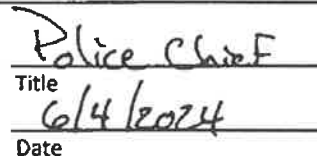 Police Chief
Title
6/4/2024
Date